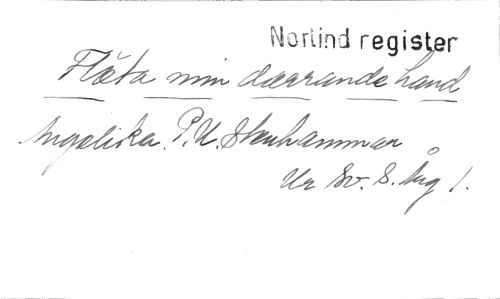 Norlind register
Flåta min darrande hand
Angelika. P. U. Stenhammar
Ur Sv. S. Årg 1.